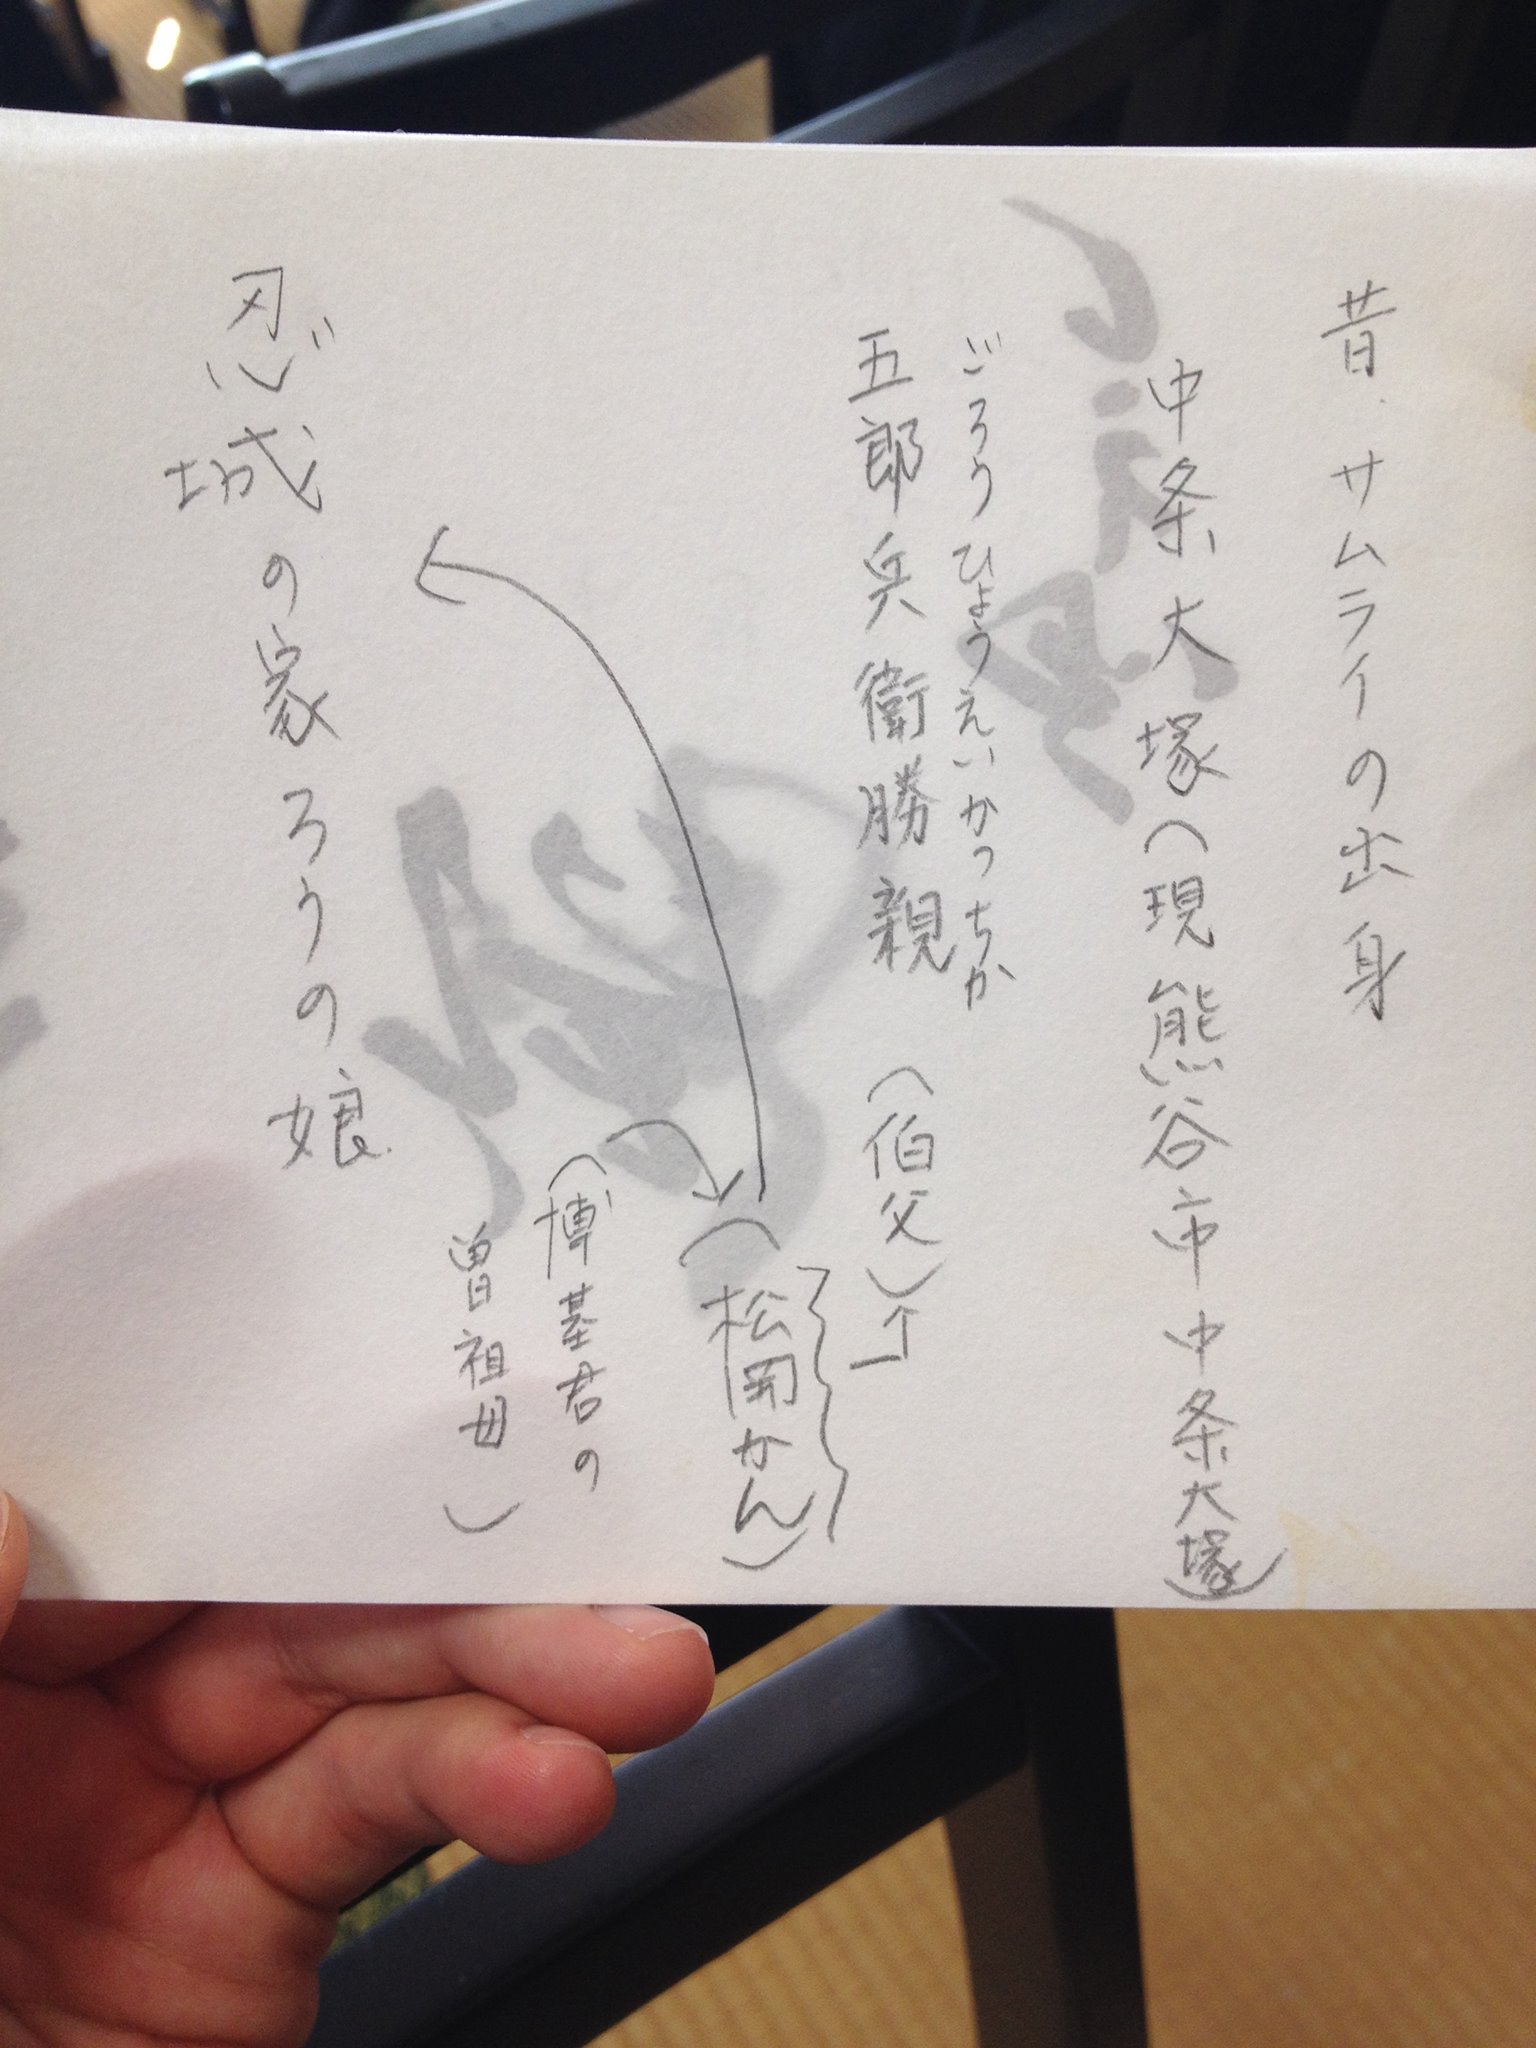 昔.サムライの出身
中条大塚(現熊谷市中条大塚)
ごろうひょうえいかっちか
五郎兵衛勝親(伯父)
(松岡かん)
(博基君の
曽祖母)
忍城の家ろうの娘